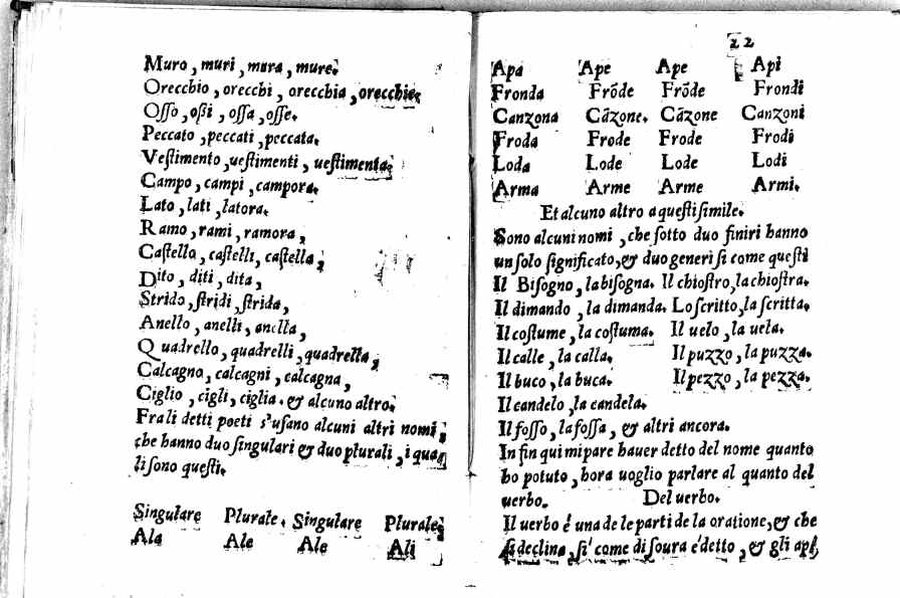 Muro, muri, mura, mure.
Orecchio, orecchi, orecchia, orecchie,
Oſſo, oßi, oſſa, oſſe.
Peccato, peccati, peccata.
Veſtimento, ueſtimenti, ueſtimenta.
Campo, campi, campora.
Lato, lati, latora.
Ramo, rami, ramora,
Caſtello, caſtelli, caſtella,
Dito, diti, dita,
Strido, ſtridi, ſtrida,
Anello, anelli, anella,
Quadrello, quadrelli, quadrella,
Calcagno, calcagni, calcagna,
Ciglio, cigli, ciglia. & alcuno altro.
Frali detti poeti s'uſano alcuni altri nomi,
che hanno duo ſingulari & duo plurali, i qua
li ſono queſti.
Singulare Plurale. Singulare Plurale.
Ala Ale Ale Ali
22
Apa Ape Ape Api
Fronda Frõde Frõde Frondi
Canzona Cãzone. Cãzone Canzoni
Froda Frode Frode Frodi
Loda Lode Lode Lodi
Arma Arme Arme Armi.
Et alcuno altro a queſti ſimile.
Sono alcuni nomi, che ſotto duo finiri hanno
un ſolo ſignificato, & duo generi ſi come queſti
Il Biſogno, la biſogna. Il chioſtro, la chioſtra.
Il dimando, la dimanda. Lo ſcritto, la ſcritta.
Il coſtume, la coſtuma. Il uelo, la uela.
Il calle, la calla. Il puzzo, la puzza.
Il buco, la buca. Il pezzo, la pezza.
Il candelo, la candela.
Il foſſo, la foſſa, & altri ancora.
In fin qui mi pare hauer detto del nome quanto
ho potuto, hora uoglio parlare al quanto del
uerbo. Del uerbo.
Il uerbo é una de le parti de la oratione, & che
ſi declina, ſi' come di ſoura é detto, & gli api,